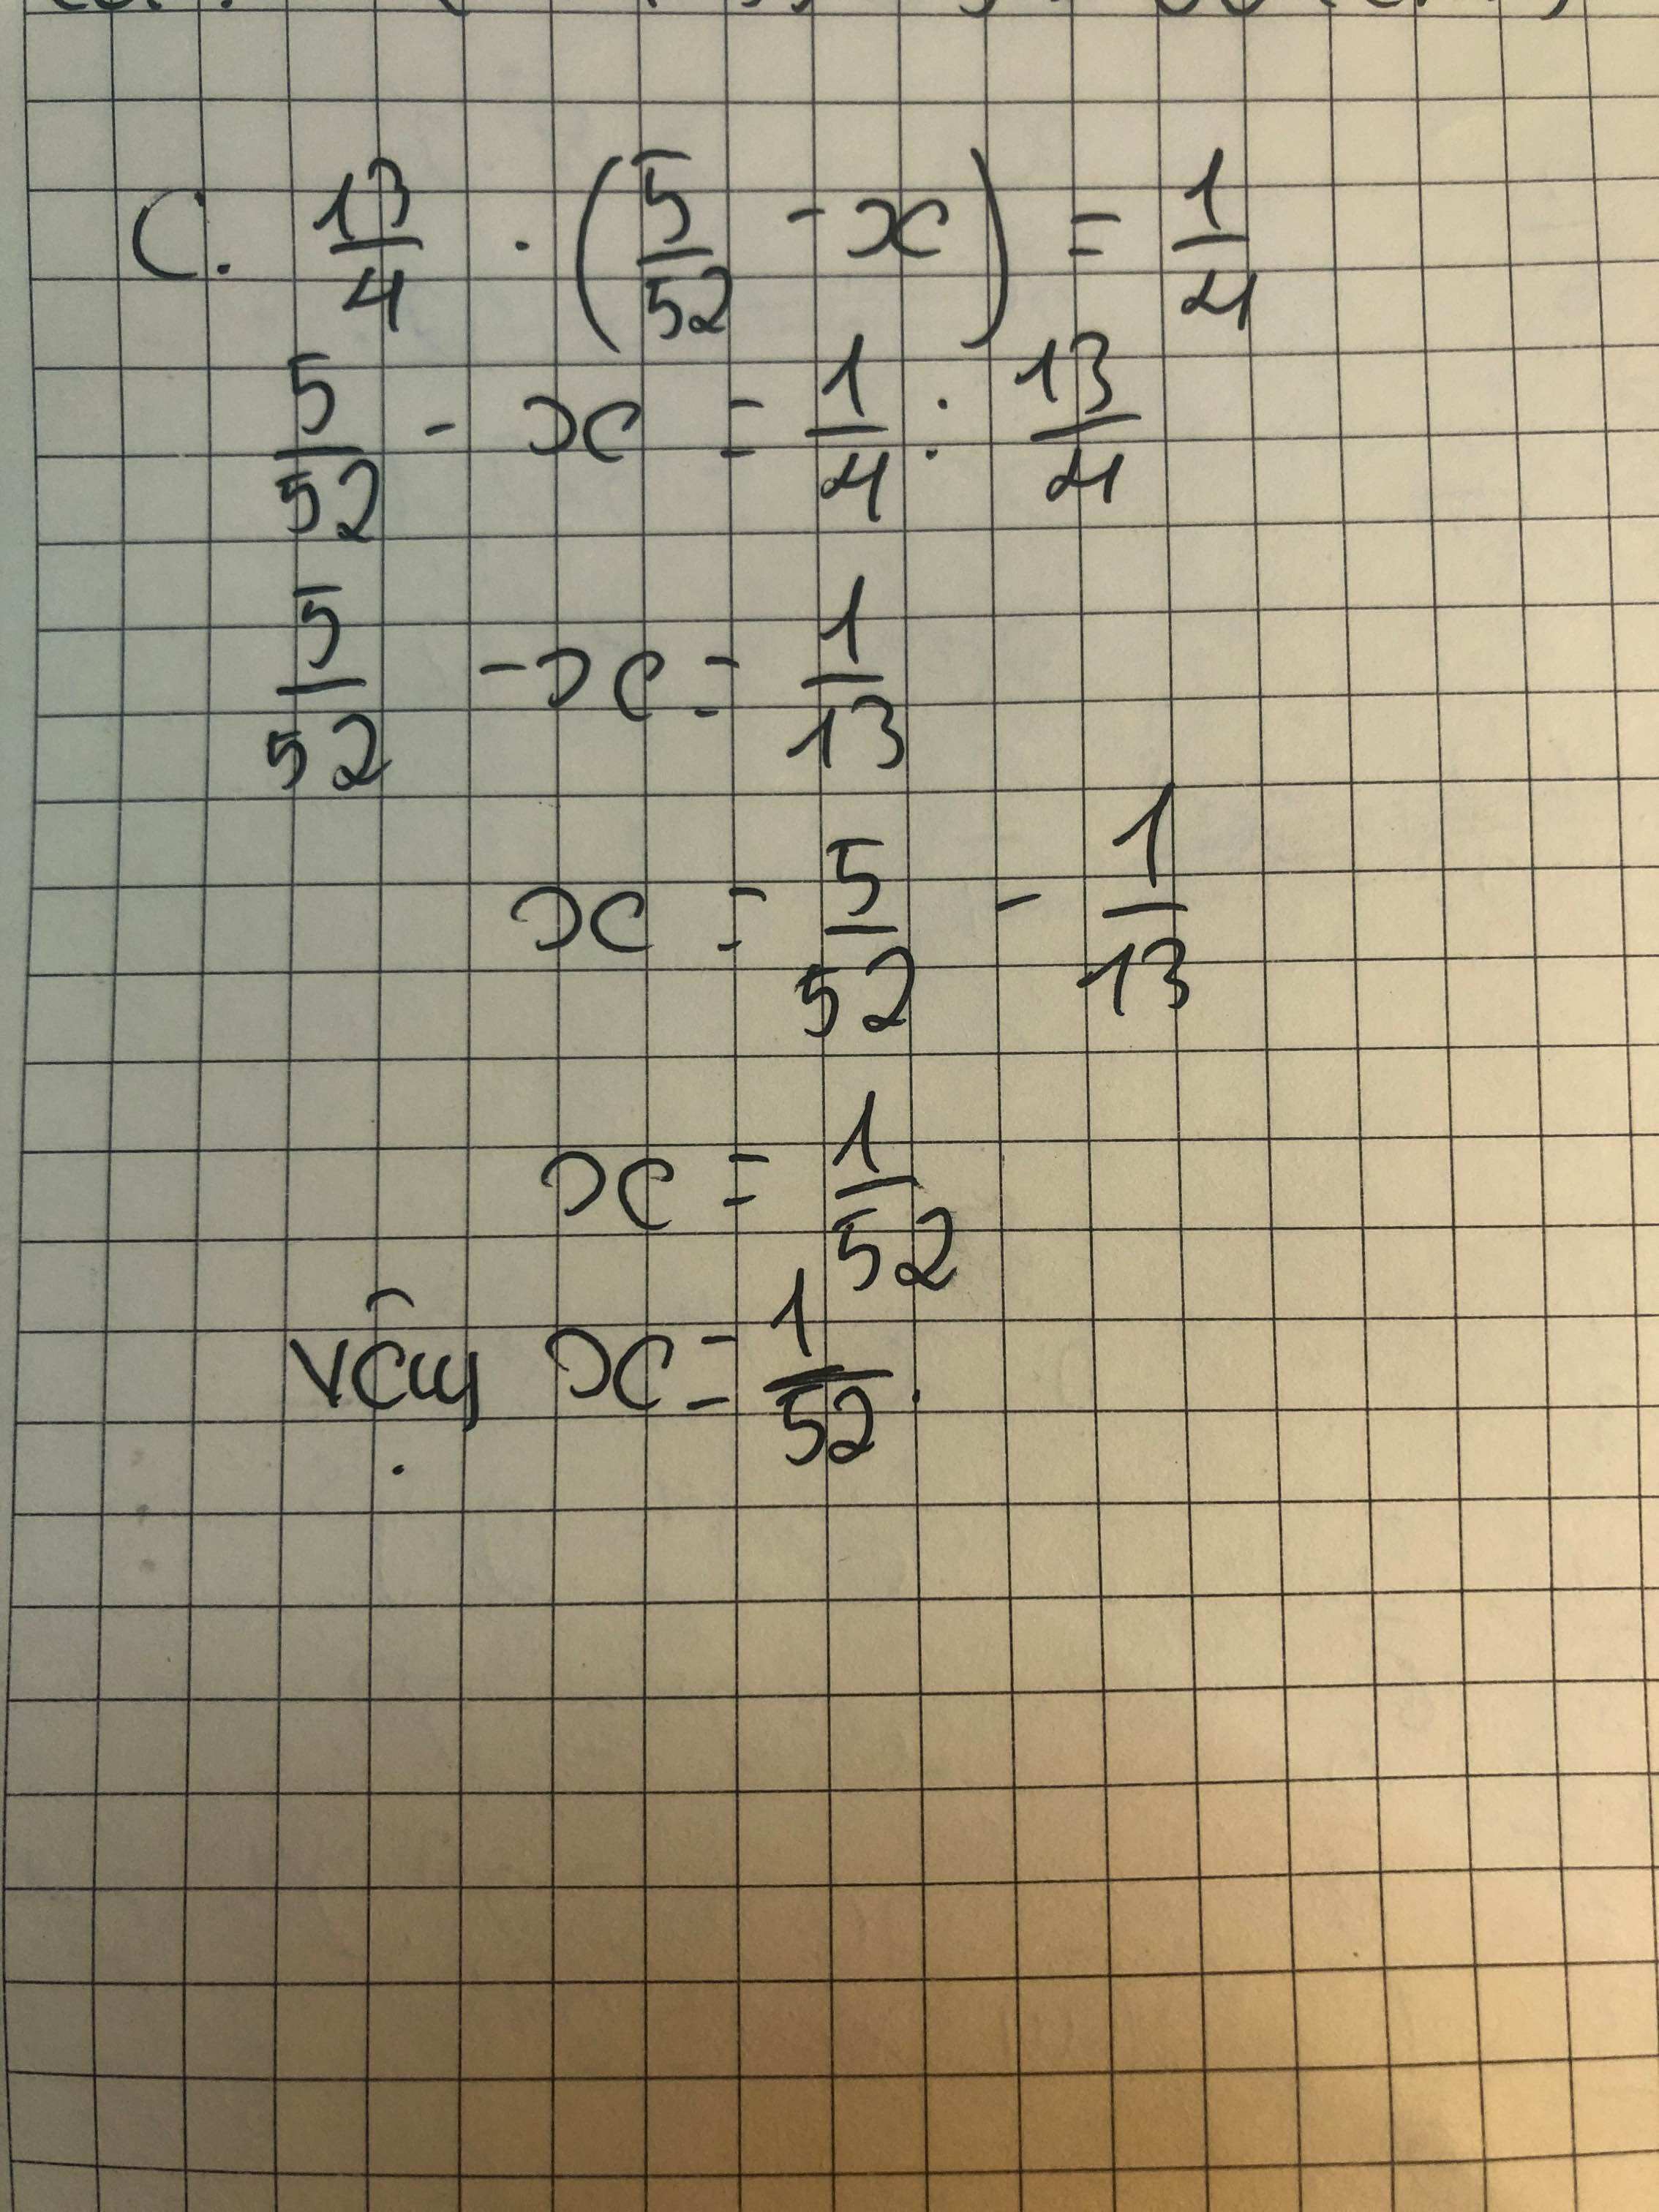 C. 13/4 . (5/52 - x) = 1/4
5/52 - x = 1/4 : 13/4
5/52 - x = 1/13
x = 5/52 - 1/13
x = 1/52
Vậy x = 1/52.